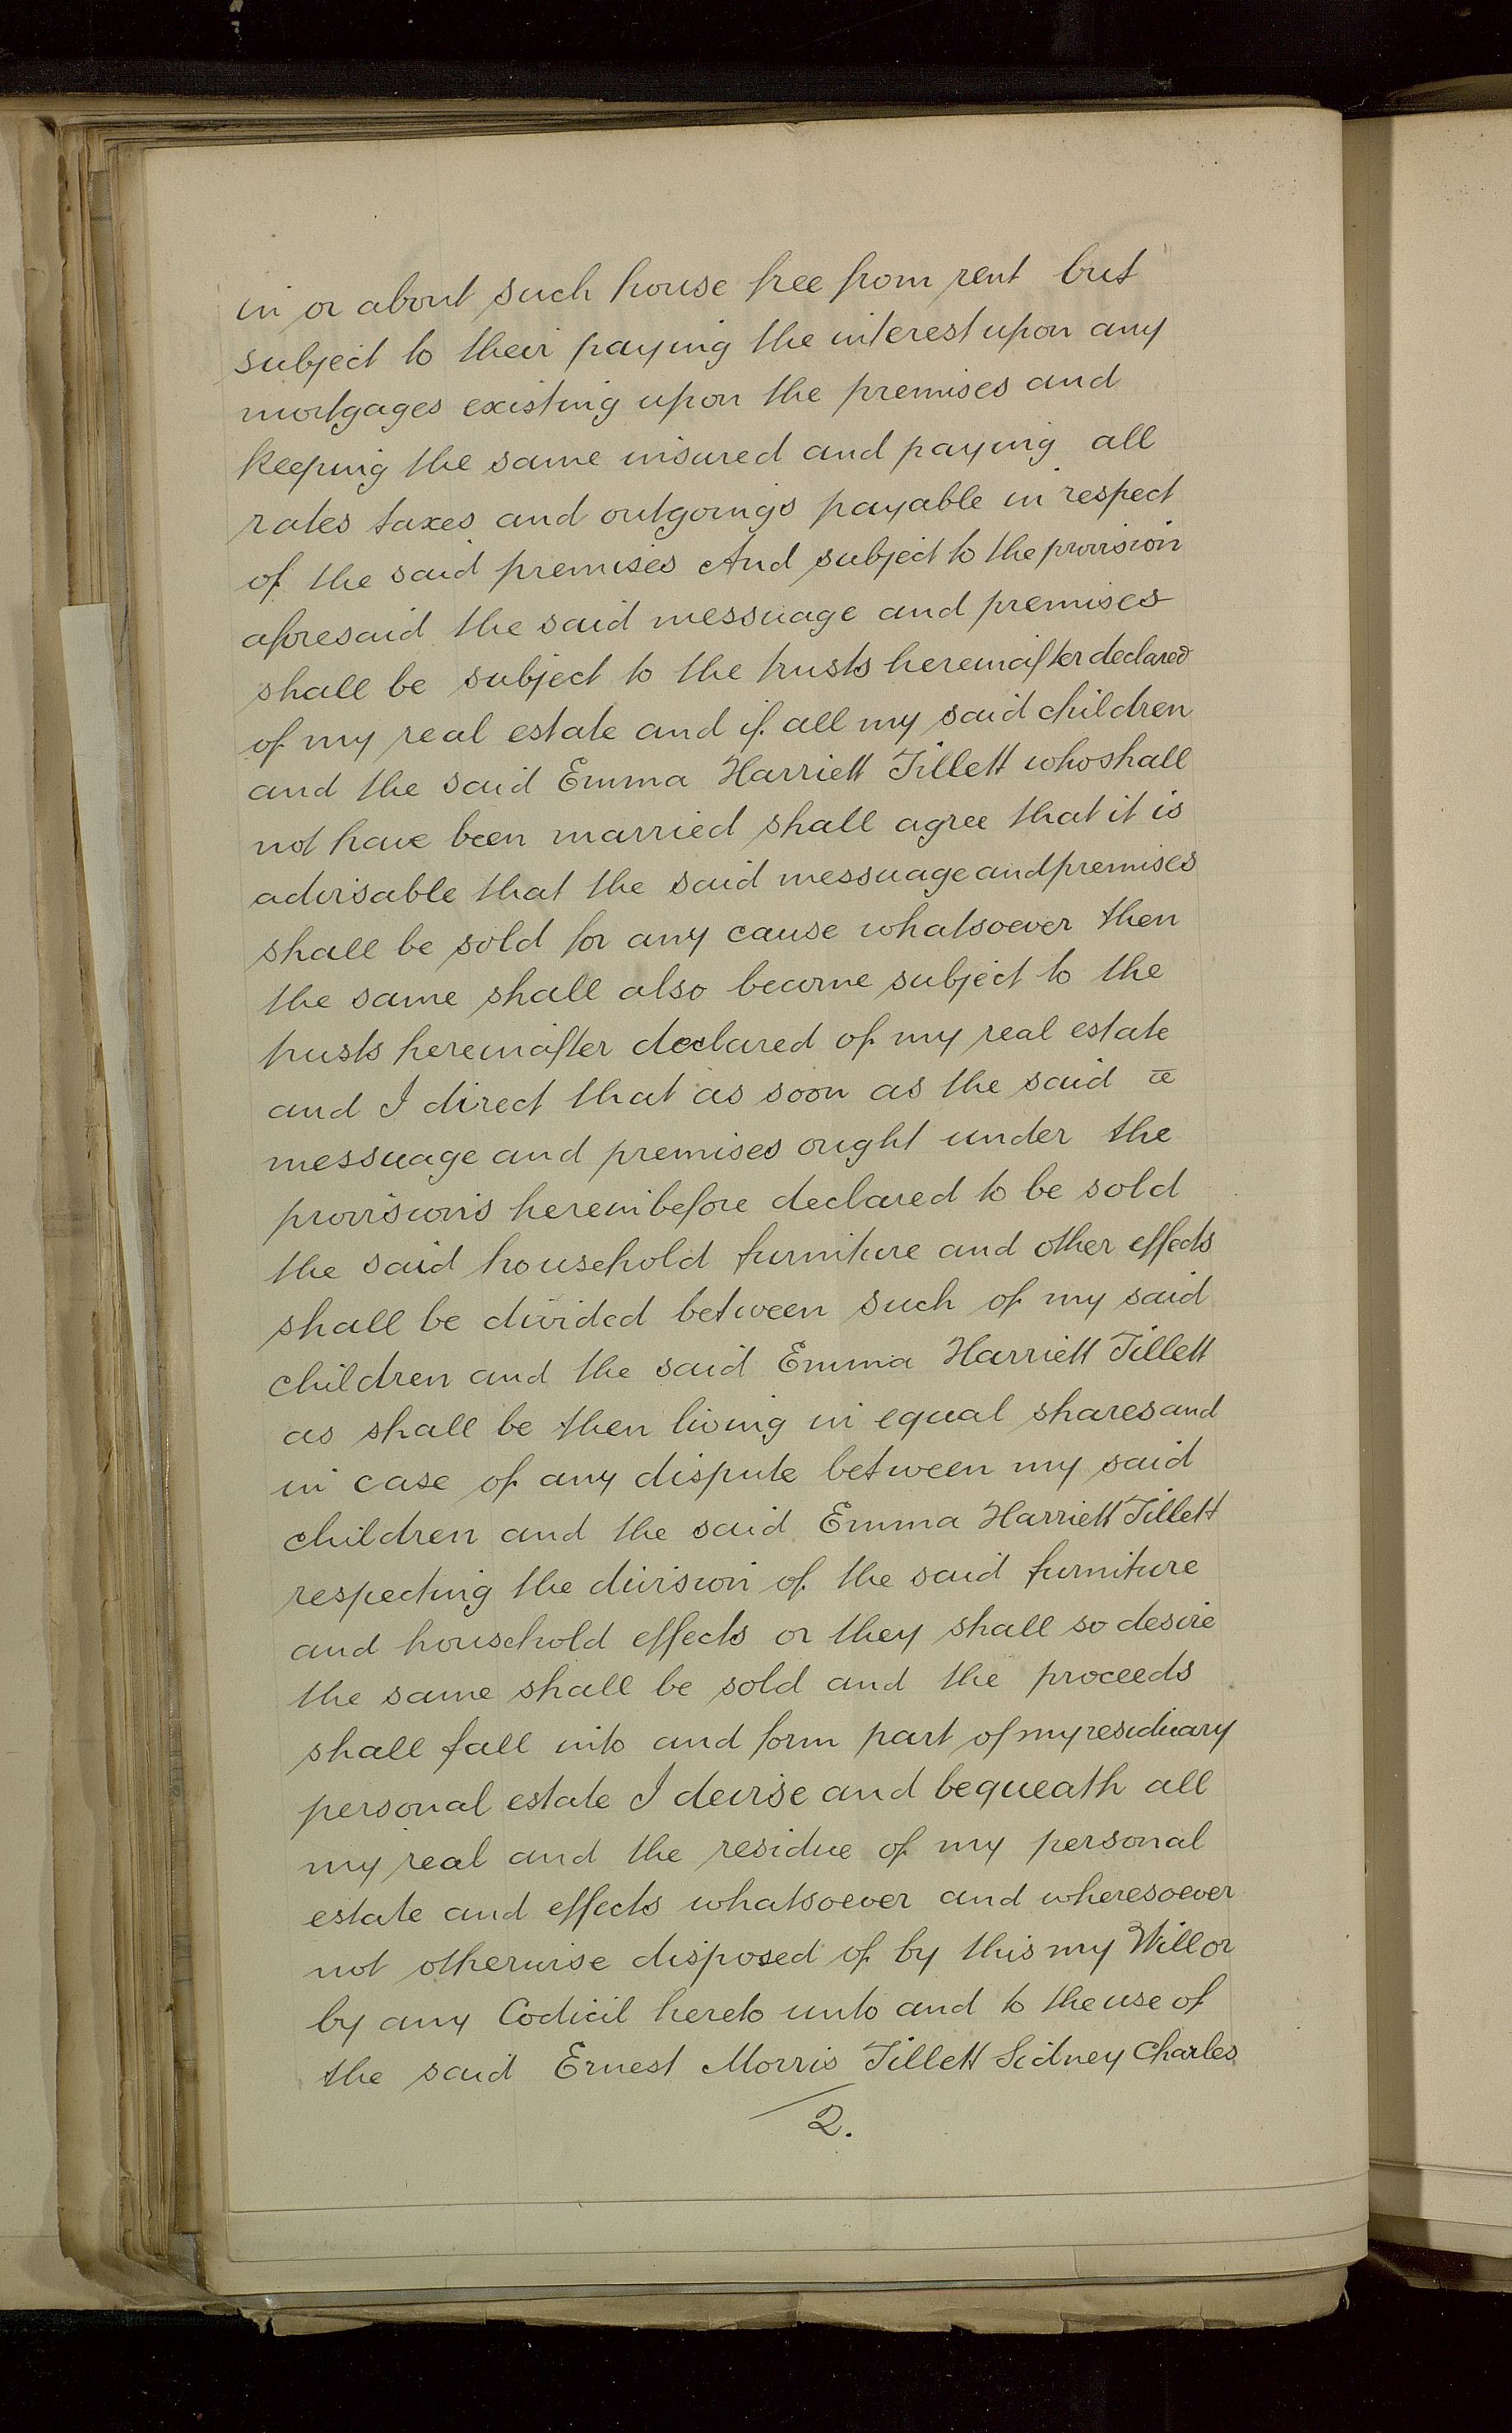 in or about such house free from rent but
subject to their paying the interest upon any
mortgages existing upon the premises and
keeping the same insured and paying all
rates taxes and outgoings payable in respect
of the said premises And subject to the provision
aforesaid the said messuage and premises
shall be subject to the trusts hereinafter declared
of my real estate and if all my said children
and the said Emma Harriett Tillett who shall
not have been married shall agree that it is
advisable that the said messuage and premises
shall be sold for any cause whatsoever then
the same shall also become subject to the
trusts hereinafter declared of my real estate
and I direct that as soon as the said
messuage and premises ought under the
provisions hereinbefore declared to be sold
the said household furniture and other effects
shall be divided between such of my said
children and the said Emma Harriett Tillett
as shall be then living in equal shares and
in case of any dispute between my said
children and the said Emma Harriett Tillett
respecting the division of the said furniture
and household effects or they shall so desire
the same shall be sold and the proceeds
shall fall into and form part of my residuary
personal estate I devise and bequeath all
my real and the residue of my personal
estate and effects whatsoever and wheresoever
not otherwise disposed of by this my Will or
by any Codicil hereto unto and to the use of
the said Ernest Morris Tillett Sidney Charles
2.